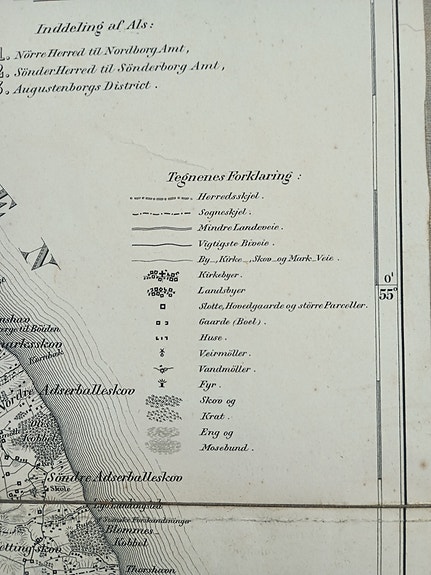 Inddeling af Als:
1. Nörre Herred til Nordborg Amt,
2. Sönder Herred til Sönderborg Amt,
3. Augustenborgs District.
Tegnenes Forklaring:
Herredsskjel.
Sogneskjel.
Mindre Landeveie.
Vigtigste Biveie.
By_, Kirke_, Skov_og Mark_Veie.
Kirkebyer.
Landsbyer
Slotte, Hovedgaarde og större Parceller.
Gaarde (Boel).
Huse.
Veirmöller.
Vandmöller.
Fyr.
Skov og
Krat.
Eng og
Mosebund.
0'
55°
N
til Böiden
Kornbæk
Nordre Adserballeskov
Kobbel
Söndre Adserballeskov
Skole
Blommes
Kobbel
Thorshavn